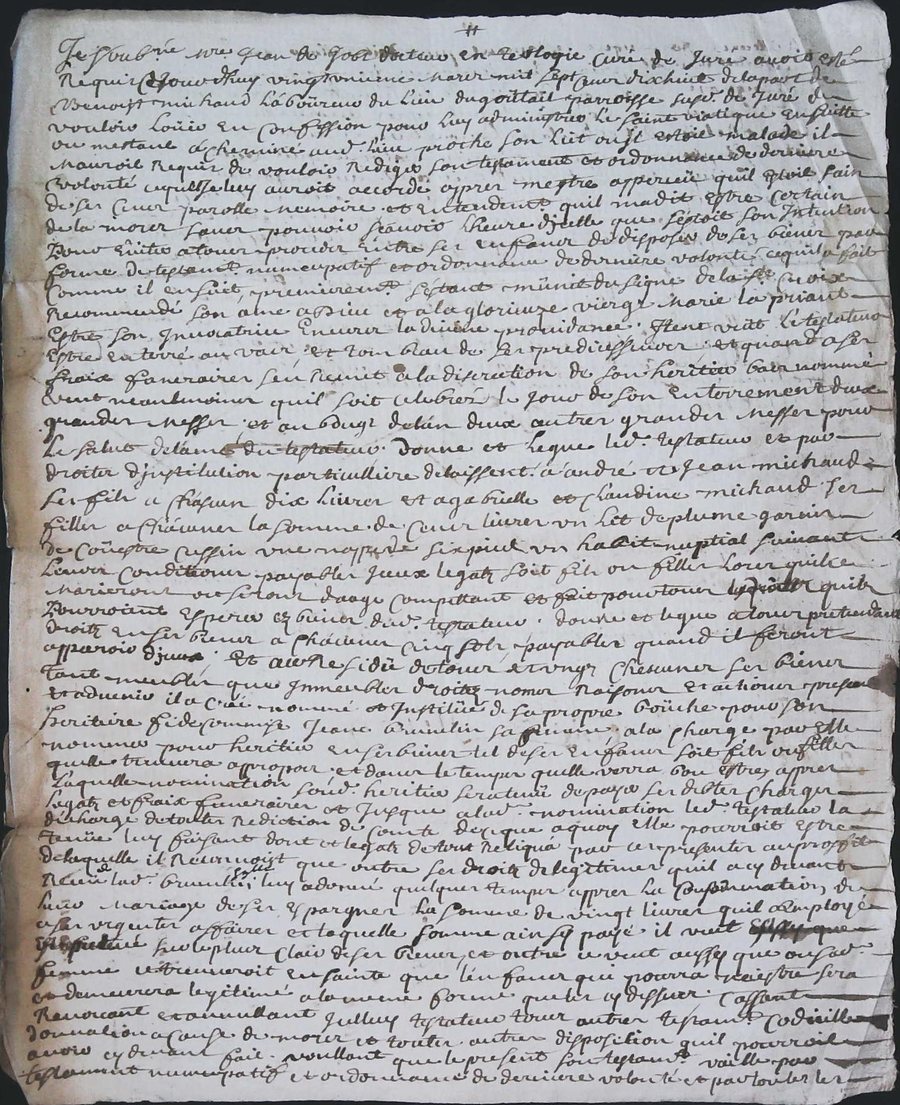 Je Soubné mre Jean de Jobt docteur en teologie cure de Juré avoir esté
Requir cejourdhuy vingtunieme mars mil sept cent dix huit de la part de
Benoist michaud Laboureur du Lieu du goutail parroisse susd. de Juré de
vouloir Louir en Confession pour luy administrer Le saint viatique Ensuitte
ou mestant achemine aud. Lieu proche son Lict ou Il estoit malade il
Mauroit Requir de vouloir Rediger son testament et ordonnance de derniere
volonté ce que Je luy aurois accordé apprer mestre apperceu quil estoit sain
de ser sens parolle memoire et entendement quil madit estre certain
de la mort sans pouvoir scavoir Lheure dicelle que sestoit son Intention
pour Eviter a tout procedes entre ser enfans de disposer de ser biens par
forme de testamt nuncupatif et ordonnance de derniere volonté ce quil a fait
Comme il ensuit, premieremt. sestant munit du signe de la ste Croix
Recommendé son ame a dieu et a la glorieuze vierge Marie la priant
Estre son Invocatrice Envers la divine providance. Item veut Le testateur
Estre enterré au vair et tombeau de ser predicesseurs et quand a ser
fraix funerairer sen Remet a la discretion de son heritier bas nommé
veut neanlmoiner quil soit celebrez le Jour de son Enterrement deux
grander Messer et au bout de lan deux autrer grander Messer pour
Le salut de lame du testateur. Donne et legue led. testateur et par
droiter d'institution particulliere delaissent a andre et Jean michaud
ser fils a chascun dix Livrer et a gabrielle et Claudine michaud ser
filler a chacuner la somme de cent livrer un Lit de plume garnir
de Couestre cussin une nappe de six pied un habit nuptial suivant
Leurs conditioner payabler Iceux legatz soit fils ou filler Lorsquilse
Marieront ou seront daage compettant et fait pour tour les droitz quilz
pourroient esperer ez biens dud. testateur. donne et legue a tour pretendant
droitz en ser biener a chacuner cinq solz payabler quand il feront
apparoir diceux. Et au Residu de tour et unger chesuner ser biener
tant meubler que Immeubler droitz nomer Raisoner et actioner presen
et advenir il a crée nommé et Institué de sa propre bouche pour son
heritiere fideicommise Jeane brunelin sa femme a la charge par Elle
nommer pour heritier en ser biener tel de ser enfans soit fils ou filler
quelle trouvera appropoor et dans le temps quelle verra bon estre apprer
Laquelle nomination sond. heritier sera tenu de payer ser debter charger
legatz et fraix funerairer et Jusque a lad. nomination led. testateur la
discharge de touter Reddiction de Compte dezique a quoy Elle pourroit estre
tenüe luy faisant dont et legatz de tout Reliqua par ces presenter au proffit
de laquelle il Reconnoist que outre ser droitz de legitimer quil a cy devant
Receu lad. brunelin luy a donné quelquer temps apprer la Consommation de
leur Mariage de ser Espargner la somme de vingt livrer quil a Employé
a ser urgenter affairer et laquelle somme ainsy payé il veut
sur le plus clair de ser biener, et outre ce veut aussy que ou sad.
femme se trouveroit ensainte que lenfant qui pourra naistre sera
et demeurera legitimé a la meme forme que ler cy dessuer. Cassant
Revocant et annullant Icelluy testateur tour autrer testamt. Codicille
donnation a cause de mort et touter autrer disposition quil pourroit
avoir cy devant fait. voullant que le present son testamt. vaille par
testament nuncupatif et ordonnance de derniere volonté et par touter ler